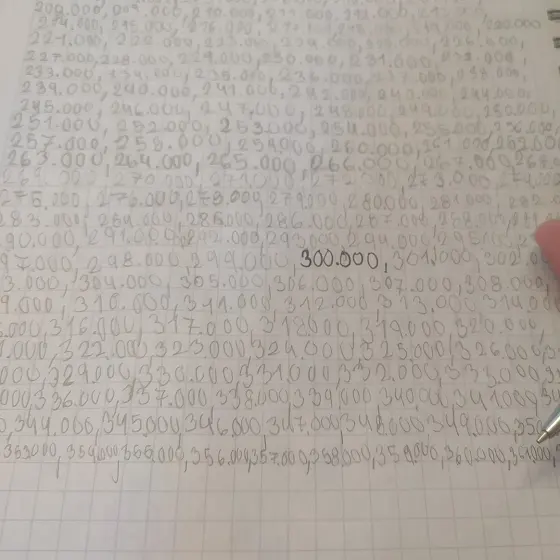 209.000, 210.000, 211.000, 212.000,
214.000, 215.000, 216.000, 220.000
221.000, 222.000, 223.000, 224.000, 226.000,
227.000, 228.000, 229.000, 230.000, 231.000, 232.000,
233.000, 234.000, 235.000, 236.000, 237.000, 238.000,
239.000, 240.000, 241.000, 242.000, 243.000, 244.000,
245.000, 246.000, 247.000, 248.000, 249.000, 250.000
251.000, 252.000, 253.000, 254.000, 255.000, 256.000
257.000, 258.000, 259.000, 260.000, 261.000, 262.000
263.000, 264.000, 265.000, 266.000, 267.000, 268
270.000, 271.000, 272.000, 273.000,
275.000, 276.000, 278.000, 279.000, 280000, 281.000,
283.000, 284.000, 285.000, 286.000, 287.000, 288.000,
90.000, 291.000, 292.000, 293.000, 294.000, 295
97.000, 298.000, 299.000, 300.000, 301.000, 302.00
3.000, 304.000, 305.000, 306.000, 307.000, 308.000,
9.000, 310.000, 311.000, 312.000, 313.000, 314.00
.000, 316.000, 317.000, 318000, 319.000, 320.000,
.000, 322.000, 323.000, 324.000, 325.000, 326.000,
000, 329.000, 330.000, 331.000, 332.000, 333.000
000, 336.000, 337.000, 338.000, 339.000, 340.000, 341.000
0, 344.000, 345.000, 346.000, 347.000, 348.000, 349.000, 350
353.000, 354.000, 355.000, 356.000, 357.000, 358.000, 359.000, 360.000, 361.000,